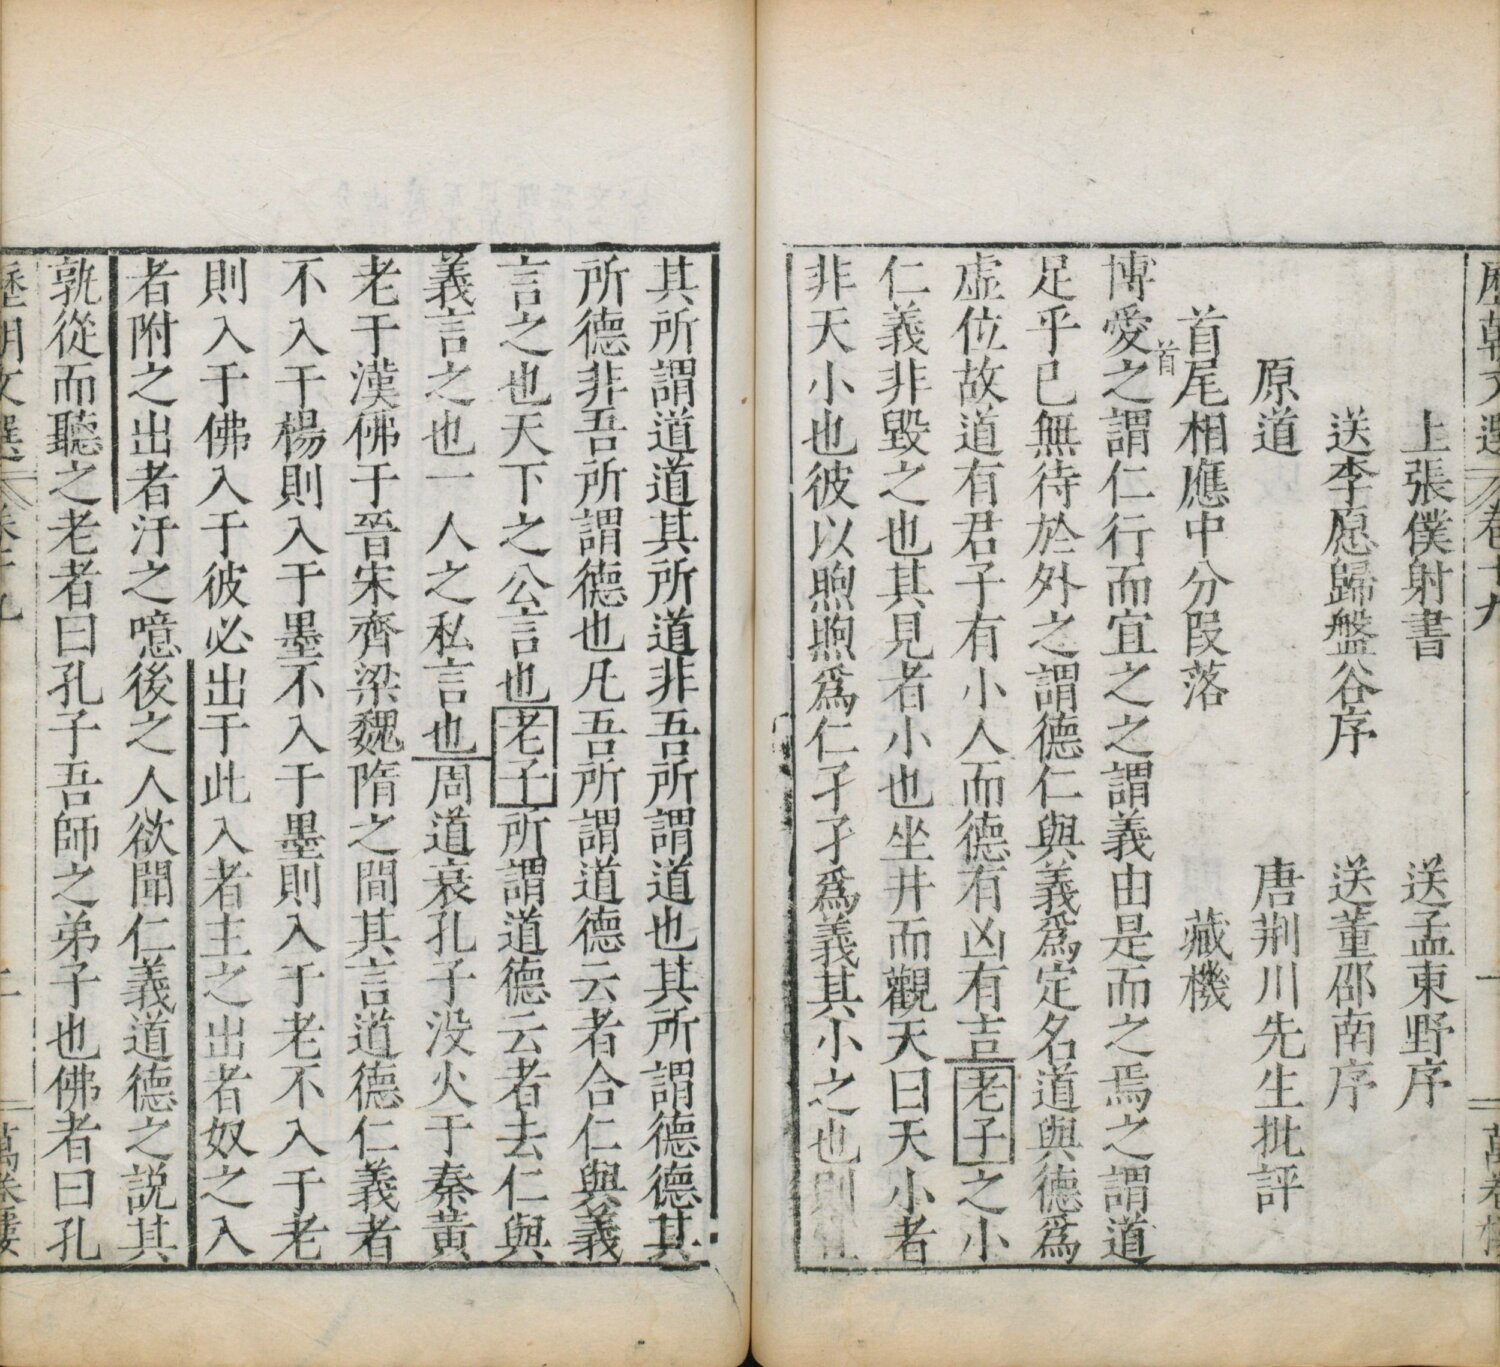 歷朝文選 卷十九 一 萬卷樓
上張僕射書 送孟東野序
送李愿歸盤谷序 送董邵南序
原道 唐荆川先生批評
首尾相應中分段落 藏機
首
博愛之謂仁行而宜之之謂義由是而之焉之謂道
足乎已無待於外之謂德仁與義爲定名道與德爲
虛位故道有君子有小人而德有凶有吉老子之小
仁義非毀之也其見者小也坐井而觀天曰天小者
非天小也彼以煦煦爲仁孑孑爲義其小之也則宜
其所謂道道其所道非吾所謂道也其所謂德德其
所德非吾所謂德也凡吾所謂道德云者合仁與義
言之也天下之公言也老子所謂道德云者去仁與
義言之也一人之私言也周道衰孔子没火于秦黃
老于漢佛于晉宋齊梁魏隋之間其言道德仁義者
不入于楊則入于墨不入于墨則入于老不入于老
則入于佛入于彼必出于此入者主之出者奴之入
者附之出者汙之噫後之人欲聞仁義道德之説其
孰從而聽之老者曰孔子吾師之弟子也佛者曰孔
歷朝文選 卷十九 二 萬卷樓